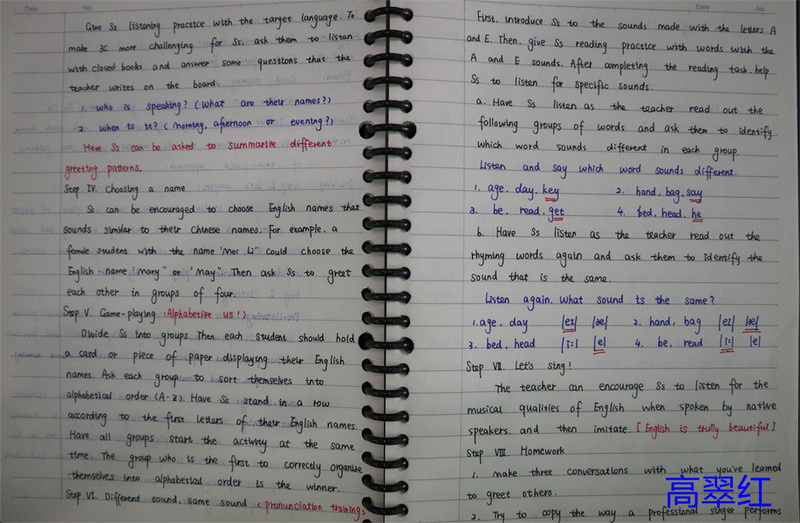 Give Ss listening practice with the target language. To
make 3c more challenging for Ss, ask them to listen
with closed books and answer some questions that the
teacher writes on the board.
1. who is speaking? (What are their names?)
2. when is it? (morning, afternoon or evening?)
Here Ss can be asked to summarize different
greeting patterns.
Step IV. Choosing a name
Ss can be encouraged to choose English names that
sounds similar to their Chinese names. For example, a
female student with the name "Mei Li" could choose the
English name "Mary" or "May". Then ask Ss to greet
each other in groups of four.
Step V. Game-playing (Alphabetize us!)
Divide Ss into groups. Then each student should hold
a card or piece of paper displaying their English
names. Ask each group to sort themselves into
alphabetical order (A-Z). Have Ss stand in a row
according to the first letters of their English names.
Have all groups start the activity at the same
time. The group who is the first to correctly organize
themselves into alphabetical order is the winner.
Step VI. Different sound, same sound (pronunciation training)
Date No.
First, introduce Ss to the sounds made with the letters A
and E. Then, give Ss reading practice with words with the
A and E sounds. After completing the reading task, help
Ss to listen for specific sounds.
a. Have Ss listen as the teacher read out the
following groups of words and ask them to identify
which word sounds different in each group
Listen and say which word sounds different.
1. age, day, key 2. hand, bag, say
3. be, read, get 4. bed, head, he
b. Have Ss listen as the teacher read out the
rhyming words again and ask them to identify the
sound that is the same.
Listen again. What sound is the same?
1. age, day |eɪ| |æ| 2. hand, bag |eɪ| |æ|
3. bed, head |i:| |e| 4. be, read |i:| |e|
Step VII. Let's sing!
The teacher can encourage Ss to listen for the
musical qualities of English when spoken by native
speakers. and then imitate. [English is trully beautiful]
Step VIII Homework
1. make three conversations with what you've learned
to greet others.
2. Try to copy the way a professional singer performs
高翠红